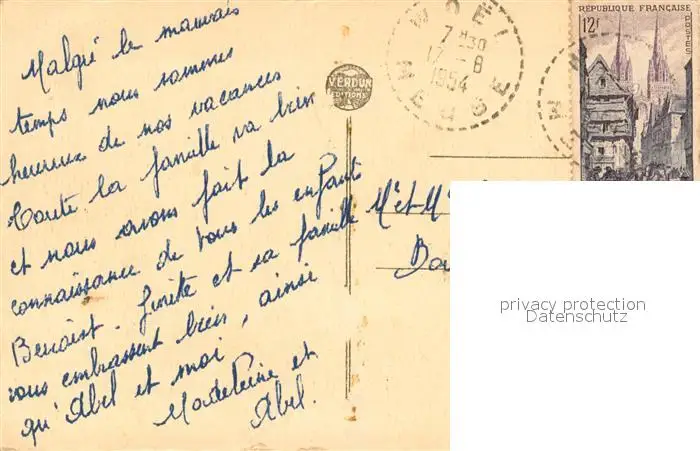 Malgré le mauvais
temps nous sommes
heureux de nos vacances
Toute la famille va bien
et nous avons fait la
connaissance de tous les enfants
Benoist. Ginette et sa famille
vous embrassent bien, ainsi
qu'Abel et moi
Madeleine et
Abel.
VERDUN
EDITIONS
WOEL
7 H30
17 - 8
1954
MEUSE
REPUBLIQUE FRANÇAISE
12F
POSTES
Mr et Mme
privacy protection
Datenschutz